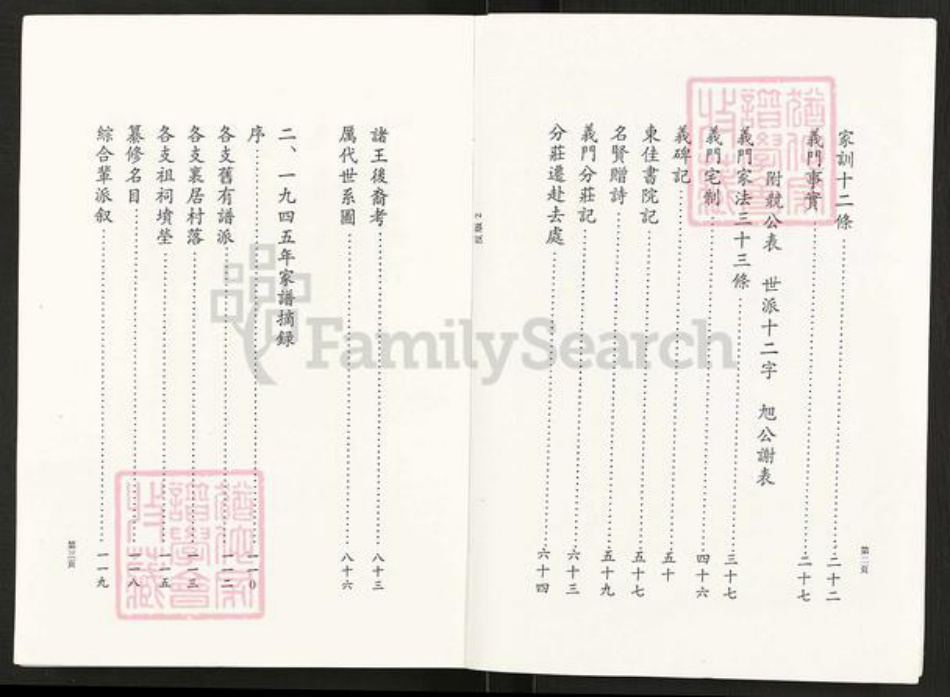 家訓十二條……二十二
義門事實……二十七
附兢公表　世派十二字　旭公謝表
義門家法三十三條……三十七
義門宅制……四十六
義碑記……五十
東佳書院記……五十七
名賢贈詩……五十九
義門分莊記……六十三
分莊遷赴去處……六十四
第二頁
諸王後裔考……八十三
厲代世系圖……八十六
二、一九四五年家譜摘錄
序……一一０
各支舊有譜派……一一二
各支裏居村落……一一三
各支祖祠墳塋……一一五
纂修名目……一一八
綜合輩派叙……一一九
第三頁
FamilySearch